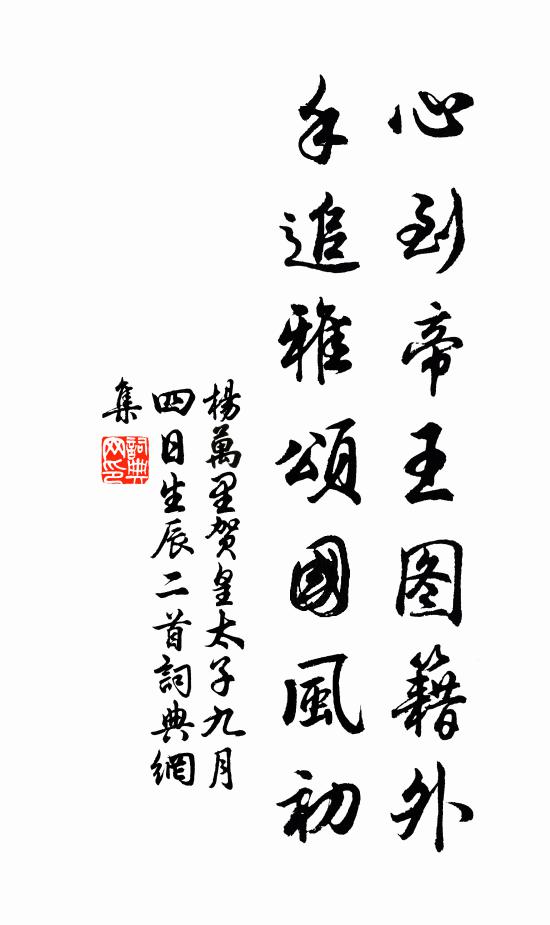 心到帝王图籍外
手追雅頌國風初
楊萬里賀皇太子九月
四日生辰二首詞典網
集
詞典
网印